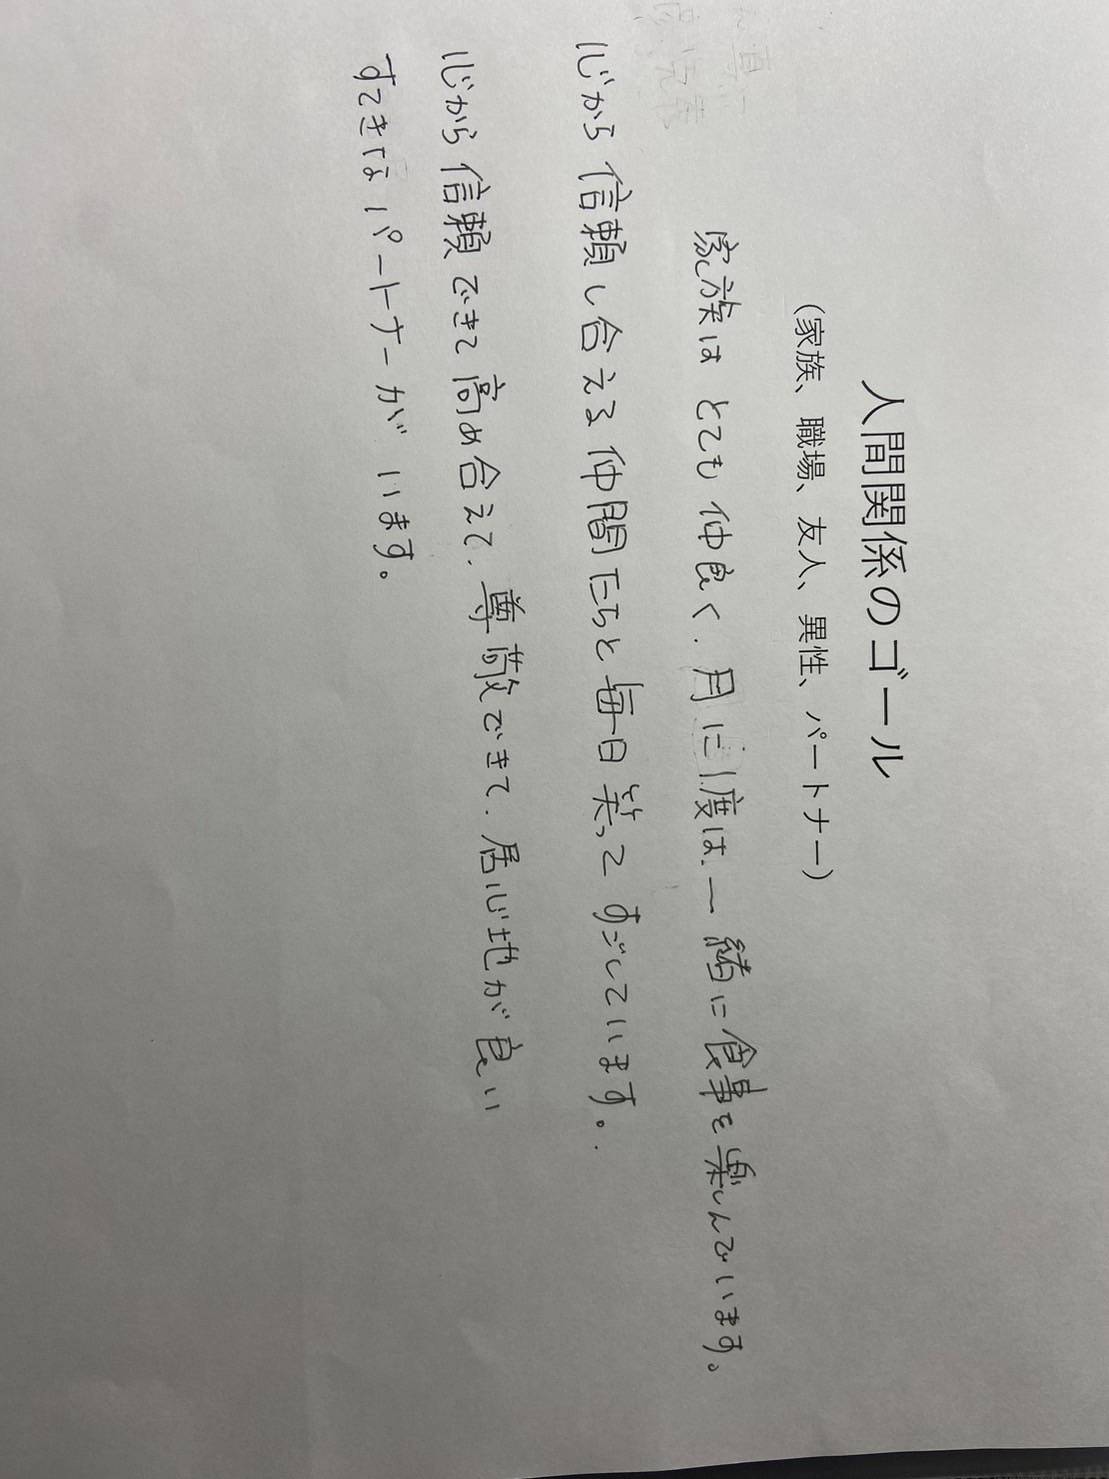 人間関係のゴール
（家族、職場、友人、異性、パートナー）
家族は とても 仲良く、月に1度は、一緒に食事を楽しんでいます。
心から 信頼し合える仲間たちと毎日笑って すごしています。
心から信頼できて高め合えて、尊敬できて、居心地が良い
すてきなパートナーがいます。